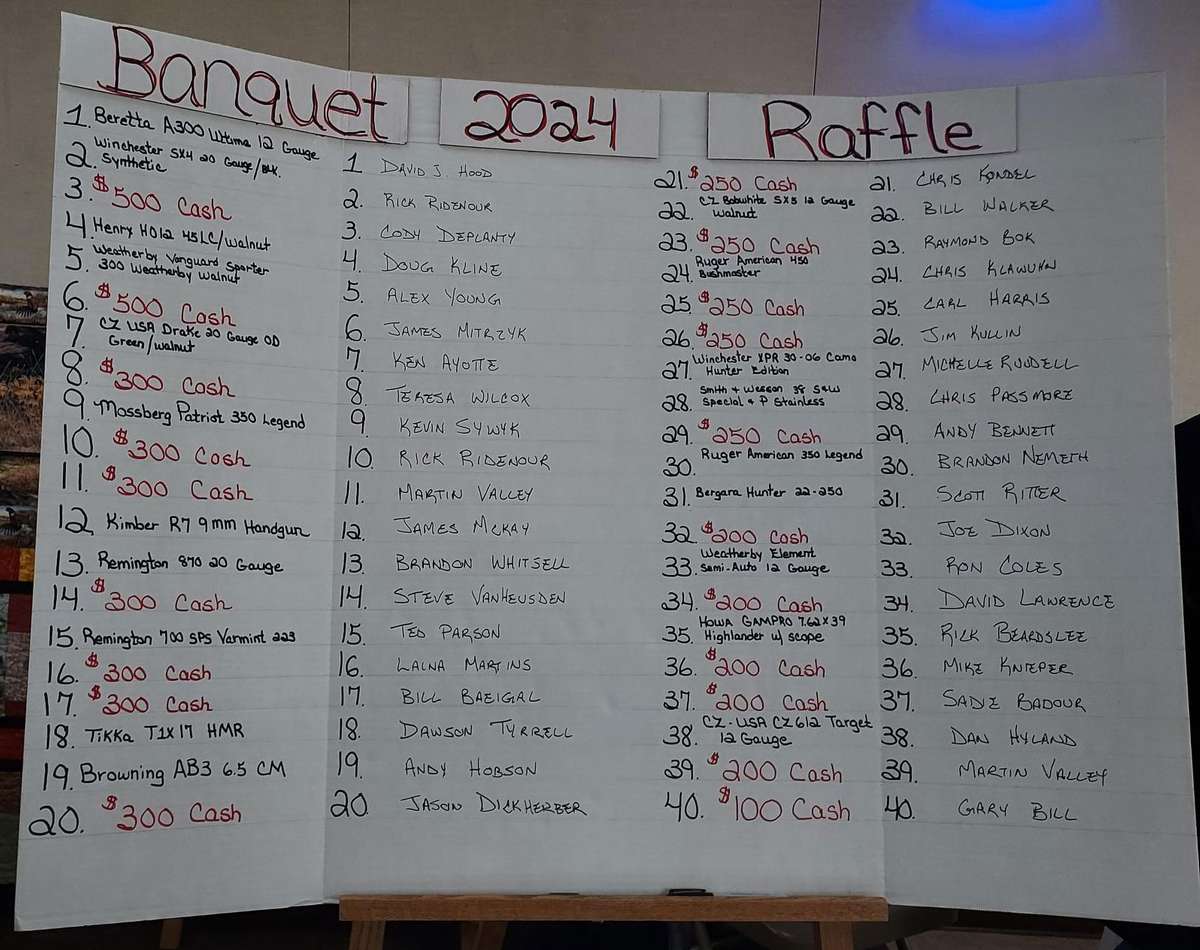 Banquet 2024 Raffle
1. Beretta A300 Ultima 12 Gauge
2. Winchester SX4 20 Gauge/Blk.
Synthetic
3. $500 Cash
4. Henry H012 45LC/walnut
5. Weatherby Vanguard Sporter
300 Weatherby Walnut
6. $500 Cash
7. CZ USA Drake 20 Gauge OD
Green/walnut
8. $300 Cash
9. Mossberg Patriot 350 Legend
10. $300 Cash
11. $300 Cash
12. Kimber R7 9mm Handgun
13. Remington 870 20 Gauge
14. $300 Cash
15. Remington 700 SPS Varmint 223
16. $300 Cash
17. $300 Cash
18. Tikka T1X 17 HMR
19. Browning AB3 6.5 CM
20. $300 Cash
1 DAVID J. HOOD
2. RICK RIDENOUR
3. CODY DEPLANTY
4. DOUG KLINE
5. ALEX YOUNG
6. JAMES MITRZYK
7. KEN AYOTTE
8. TERESA WILCOX
9 KEVIN SYWYK
10. RICK RIDENOUR
11. MARTIN VALLEY
12. JAMES MCKAY
13. BRANDON WHITSELL
14. STEVE VANHEUSDEN
15. TED PARSON
16. LAINA MARTINS
17. BILL BAEIGAL
18. DAWSON TYRRELL
19. ANDY HOBSON
20. JASON DICKHERBER
21. $250 Cash
22. CZ Bobwhite SXS 12 Gauge
walnut
23. $250 Cash
24. Ruger American 450
Bushmaster
25. $250 Cash
26. $250 Cash
27. Winchester XPR 30-06 Camo
Hunter Edition
28. Smith + Wesson 38 S&W
Special + P Stainless
29. $250 Cash
30. Ruger American 350 Legend
31. Bergara Hunter 22-250
32. $200 Cash
33. Weatherby Element
Semi-Auto 12 Gauge
34. $200 Cash
35. HOWA GAMPRO 7.62X39
Highlander w/ scope
36. $200 Cash
37. $200 Cash
38. CZ-USA CZ612 Target
12 Gauge
39. $200 Cash
40. $100 Cash
21. CHRIS KONDEL
22. BILL WALKER
23. RAYMOND BOK
24. CHRIS KLAWUHN
25. CARL HARRIS
26. JIM KULLIN
27. MICHELLE RUNDELL
28. CHRIS PASSMORE
29. ANDY BENNETT
30. BRANDON NEMETH
31. SCOTT RITTER
32. JOE DIXON
33. RON COLES
34. DAVID LAWRENCE
35. RICK BEARDSLEE
36. MIKE KNIEPER
37. SADIE BADOUR
38. DAN HYLAND
39. MARTIN VALLEY
40. GARY BILL